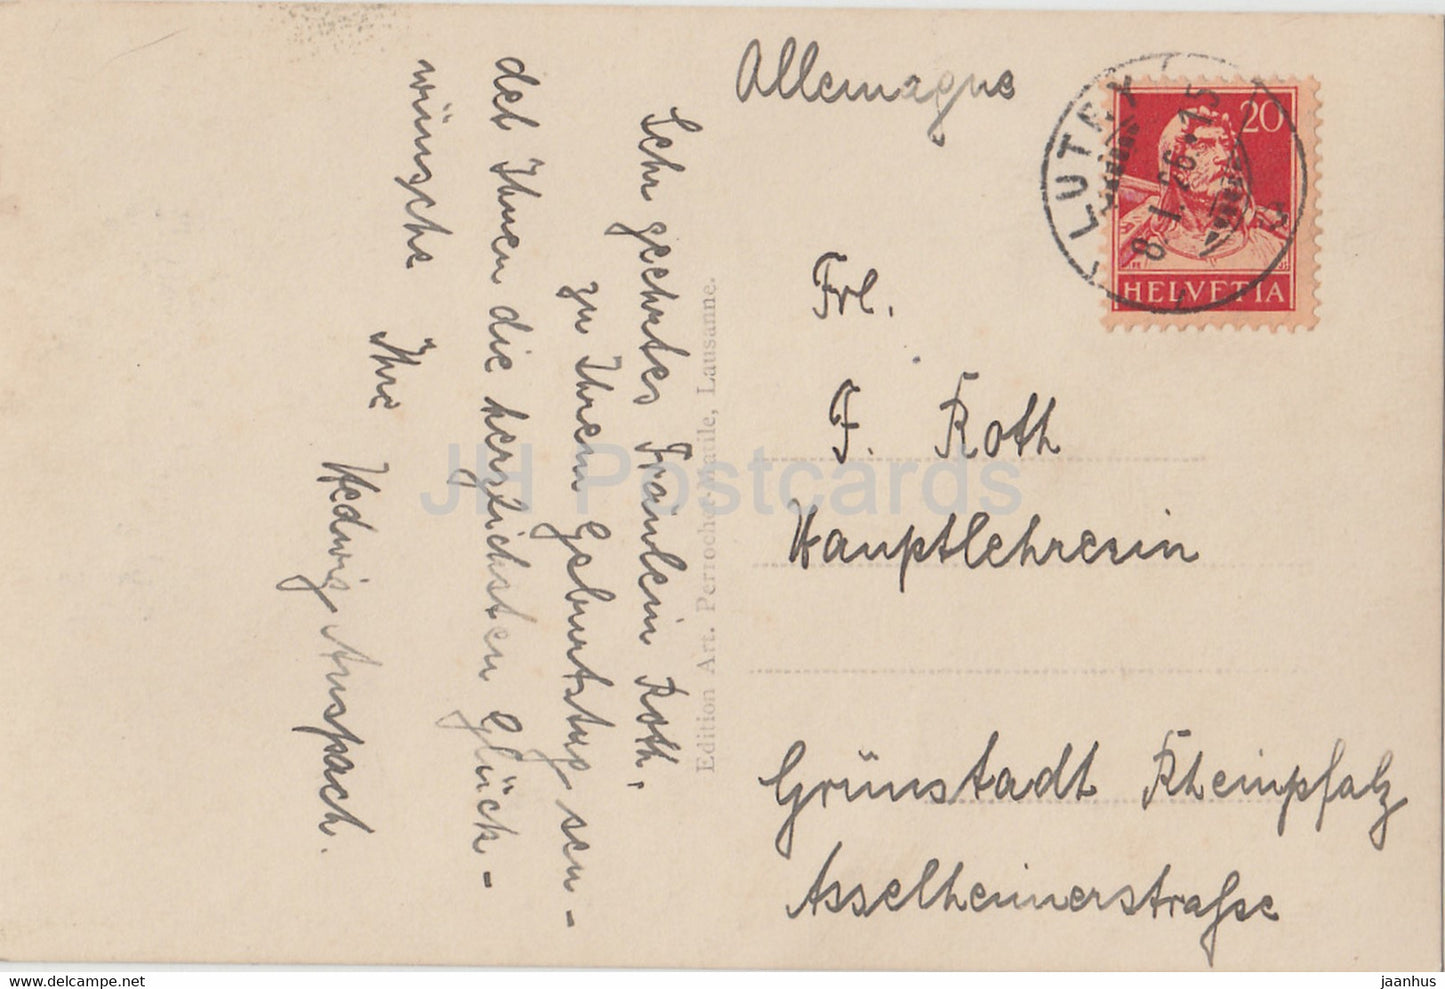 Allemagne
LUTRY
8.I.26•15
20
HELVETIA
Frl.
F. Roth
Hauptlehrerin
Grünstadt Rheinpfalz
Asselheimerstraße
Sehr geehrtes Fräulein Roth,
zu Ihrem Geburtstag sen-
det Ihnen die herzlichsten Glück-
wünsche
Ihre
Hedwig Anspach.
Edition Art. Perrochet-Matile, Lausanne.
JH Postcards
jaanhus